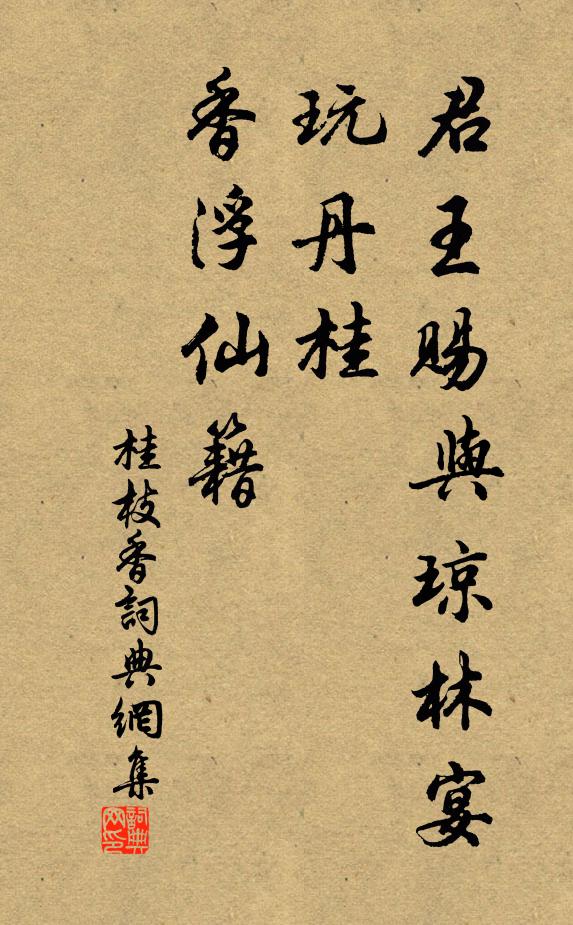 君王賜與琼林宴
玩丹桂
香浮仙籍
桂枝香詞典網集
詞典网印